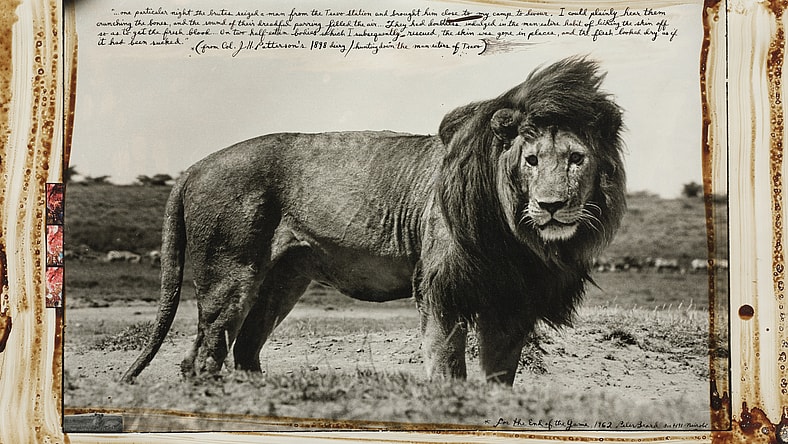 "one particular night the brutes seized a man from the Tsavo station and brought him close to my camp to devour. I could plainly hear them
crunching the bones, and the sound of their dreadful purring filled the air.. They had doubtless indulged in the man-eaters habit of licking the skin off
so as to get the fresh blood. On two half-eaten bodies which I subsequently rescued, the skin was gone in places, and the flesh looked dry as if
it had been sucked." (from Col. J.H. Patterson's 1898 diary / hunting down the man-eaters of Tsavo)
* For The End of the Game, 1962 Peter Beard Nairobi